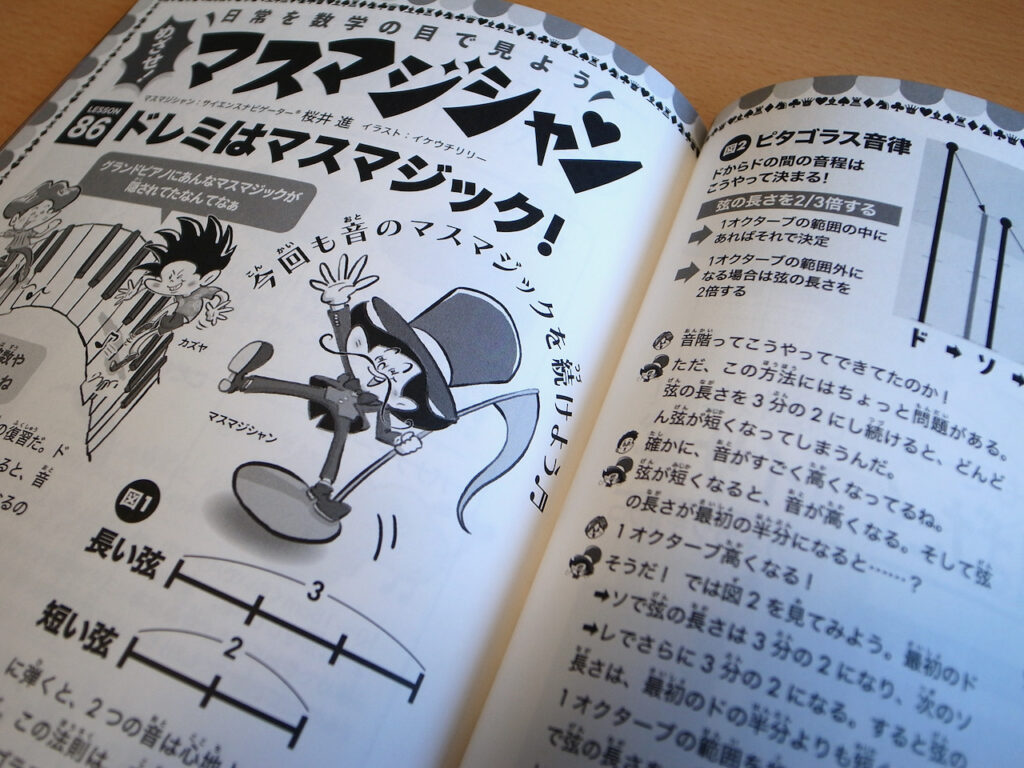 日常を数学の目で見よう
めざせ!
マスマジシャン
マスマジシャン:サイエンスナビゲーター® 桜井 進 イラスト:イケウチリリー
LESSON
86
ドレミはマスマジック!
グランドピアノにあんなマスマジックが
隠されてたなんてなぁ
今回も音のマスマジックを続けよう♬
カズヤ
マスマジシャン
の復習だ。ド
ると、音
るの
図1
長い弦
3
短い弦
2
に弾くと、2つの音は心地
。この法則は、
図2 ピタゴラス音律
ドからドの間の音程は
こうやって決まる!
弦の長さを2/3倍する
1オクターブの範囲の中に
あればそれで決定
1オクターブの範囲外に
なる場合は弦の長さを
2倍する
ド➡ソ➡
音階ってこうやってできてたのか!
ただ、この方法にはちょっと問題がある。
弦の長さを3分の2にし続けると、どんど
ん弦が短くなってしまうんだ。
確かに、音がすごく高くなってるね。
弦が短くなると、音が高くなる。そして弦
の長さが最初の半分になると……?
1オクターブ高くなる!
そうだ! では図2を見てみよう。最初のド
➡ソで弦の長さは3分の2になり、次のソ
➡レでさらに3分の2になる。すると弦の
長さは、最初のドの半分よりも短
1オクターブの範囲を
で弦の長さ